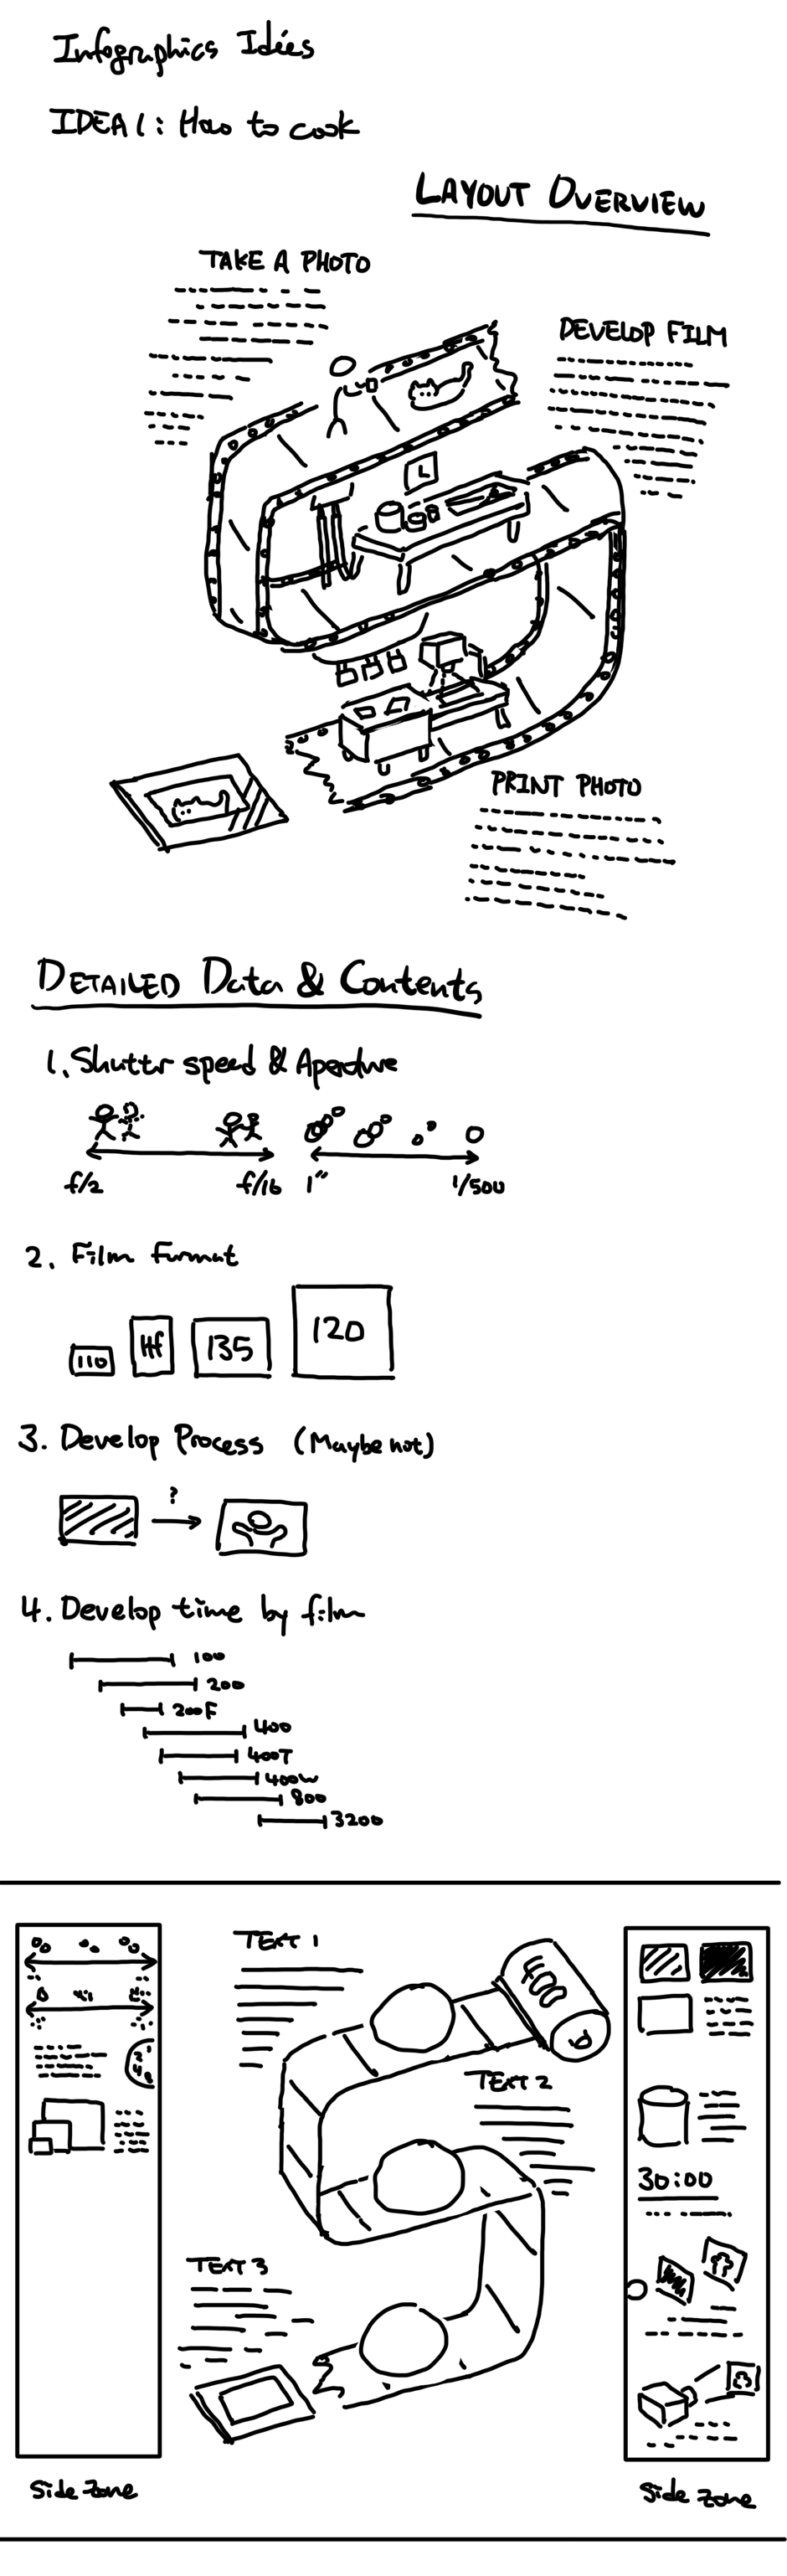 Infographics Idées
IDEA 1: How to cook
LAYOUT OVERVIEW
TAKE A PHOTO
DEVELOP FILM
PRINT PHOTO
DETAILED Data & Contents
1. Shuttr speed & Aperture
f/2
f/16
1"
1/500
2. Film format
110
Hf
135
120
3. Develop Process (Maybe not)
?
4. Develop time by film
100
200
200F
400
400T
400W
800
3200
TEXT 1
400
TEXT 2
30:00
TEXT 3
Side Zone
Side Zone